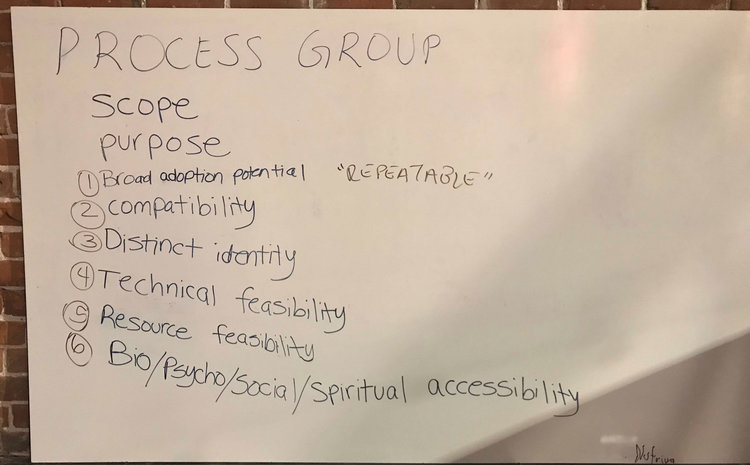 PROCESS GROUP
scope
purpose
① Broad adoption potential "REPEATABLE"
② compatibility
③ Distinct identity
④ Technical feasibility
⑤ Resource feasibility
⑥ Bio/Psycho/Social/Spiritual accessibility